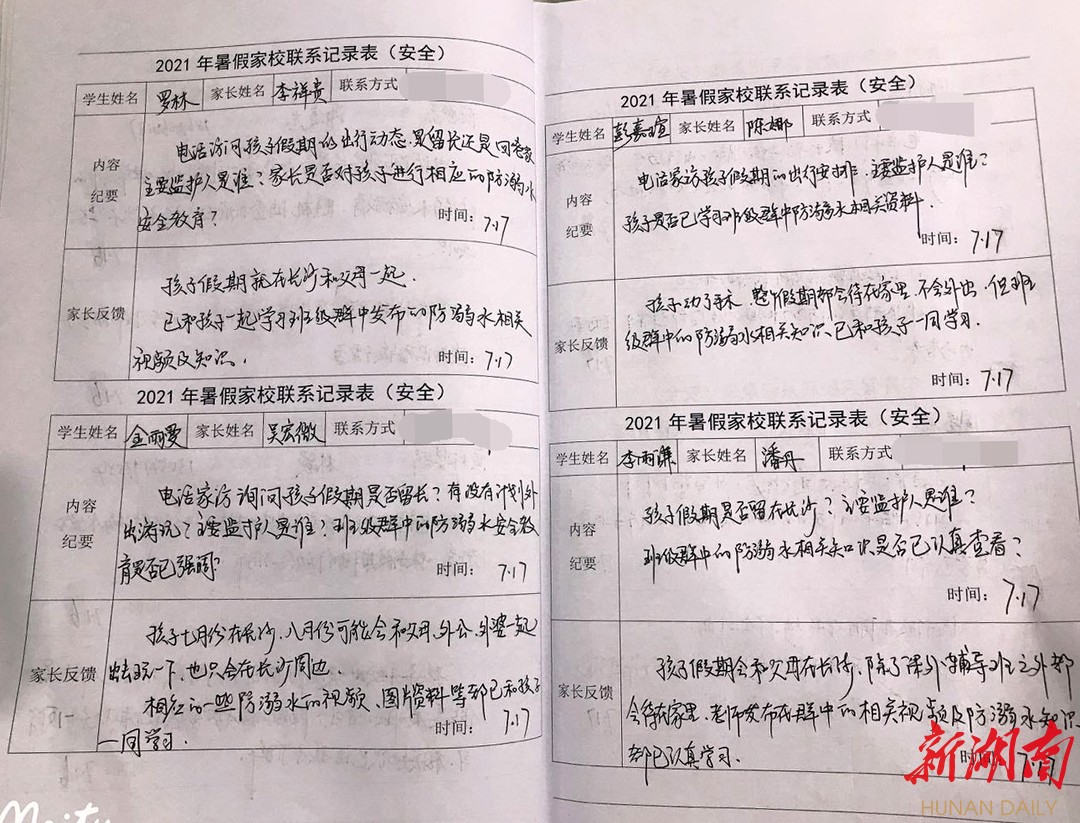 2021 年暑假家校联系记录表（安全）
学生姓名 罗林 家长姓名 李祥贵 联系方式
内容
纪要
电话访问孩子假期的出行动态，是留长还是回老家
主要监护人是谁？家长是否对孩子进行相应的防溺水
安全教育？
时间：7.17
家长反馈
孩子假期就在长沙和父母一起.
已和孩子一起学习班级群中发布的防溺水相关
视频及知识.
时间：7.17
2021 年暑假家校联系记录表（安全）
学生姓名 金雨曼 家长姓名 吴宏微 联系方式
内容
纪要
电话家访询问孩子假期是否留长？有没有计划外
出游玩？主要监护人是谁？班级群中的防溺水安全教
育是否已强调？
时间：7.17
家长反馈
孩子七月份在长沙、八月份可能会和父母、外公、外婆一起
出去玩一下、也只会在长沙周边.
相应的一些防溺水的视频、图片资料等都已和孩子
一同学习.
时间：7.17
2021 年暑假家校联系记录表（安全）
学生姓名 彭嘉瑄 家长姓名 陈娜 联系方式
内容
纪要
电话家访孩子假期的出行安排、主要监护人是谁？
孩子是否已学习班级群中防溺水相关资料.
时间：7.17
家长反馈
孩子动了手术、整个假期都会待在家里、不会外出、但班
级群中的防溺水相关知识、已和孩子一同学习.
时间：7.17
2021 年暑假家校联系记录表（安全）
学生姓名 李雨谦 家长姓名 潘丹 联系方式
内容
纪要
孩子假期是否留在长沙？主要监护人是谁？
班级群中的防溺水相关知识是否已认真查看？
时间：7.17
家长反馈
孩子假期会和父母在长沙、除了课外辅导班之外都
会待在家里、老师发布在群中的相关视频及防溺水知识
都已认真学习.
时间：7.17
新湖南
HUNAN DAILY